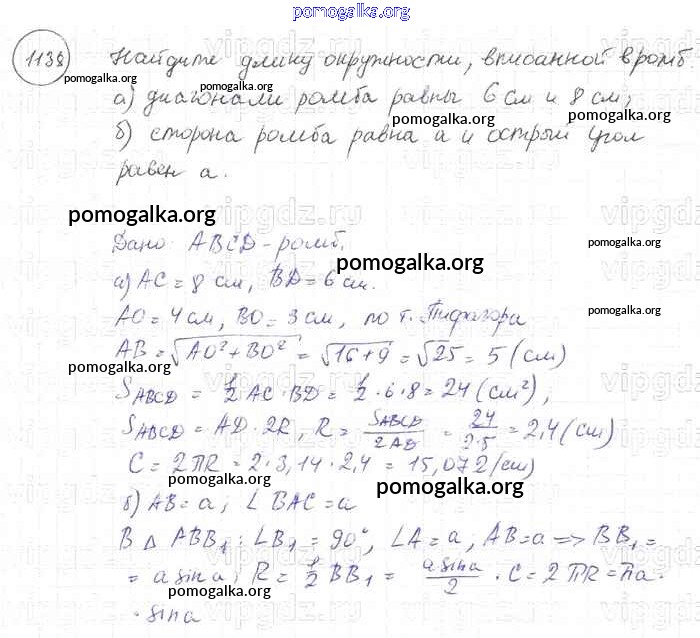 pomogalka.org
1138 Найдите длину окружности, вписанной в ромб.
pomogalka.org
pomogalka.org
а) диагонали ромба равны 6 см и 8 см;
pomogalka.org
pomogalka.org
б) сторона ромба равна a и острый угол
равен a.
pomogalka.org
Дано: ABCD - ромб.
pomogalka.org
pomogalka.org
а) AC = 8 см, BD = 6 см.
AO = 4 см, BO = 3 см, по т. Пифагора
pomogalka.org
AB = √AO² + BO² = √16 + 9 = √25 = 5 (см)
pomogalka.org
S ABCD = 1/2 AC · BD = 1/2 · 6 · 8 = 24 (см²),
pomogalka.org
S ABCD = AD · 2R, R = S ABCD / 2AD = 24 / 2·5 = 2,4 (см)
C = 2πR = 2 · 3,14 · 2,4 = 15,072 (см)
pomogalka.org
б) AB = a; ∠ BAC = a
В Δ ABB₁: ∠B₁ = 90°, ∠A = a, AB = a => BB₁ =
pomogalka.org
= a sin a; R = 1/2 BB₁ = a sin a / 2 · C = 2πR = πa ·
pomogalka.org
· sin a